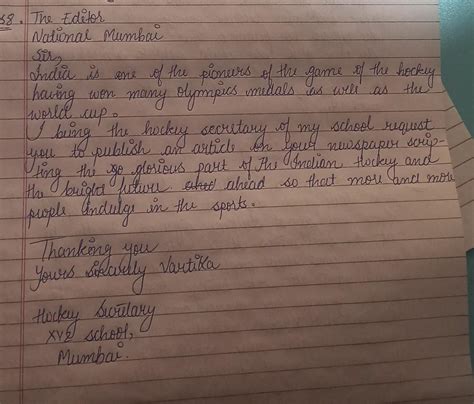 38. The Editor
National Mumbai
Sir,
India is one of the pioneers of the game of the hockey
having won many olympics medals as well as the
world cup.
I being the hockey secretary of my school request
you to publish an article in your newspaper scrip-
ting the glorious part of the Indian Hockey and
the bright future ahead so that more and more
people indulge in the sports.
Thanking you
Yours sincerely Vartika
Hockey Secretary
XYZ school,
Mumbai.